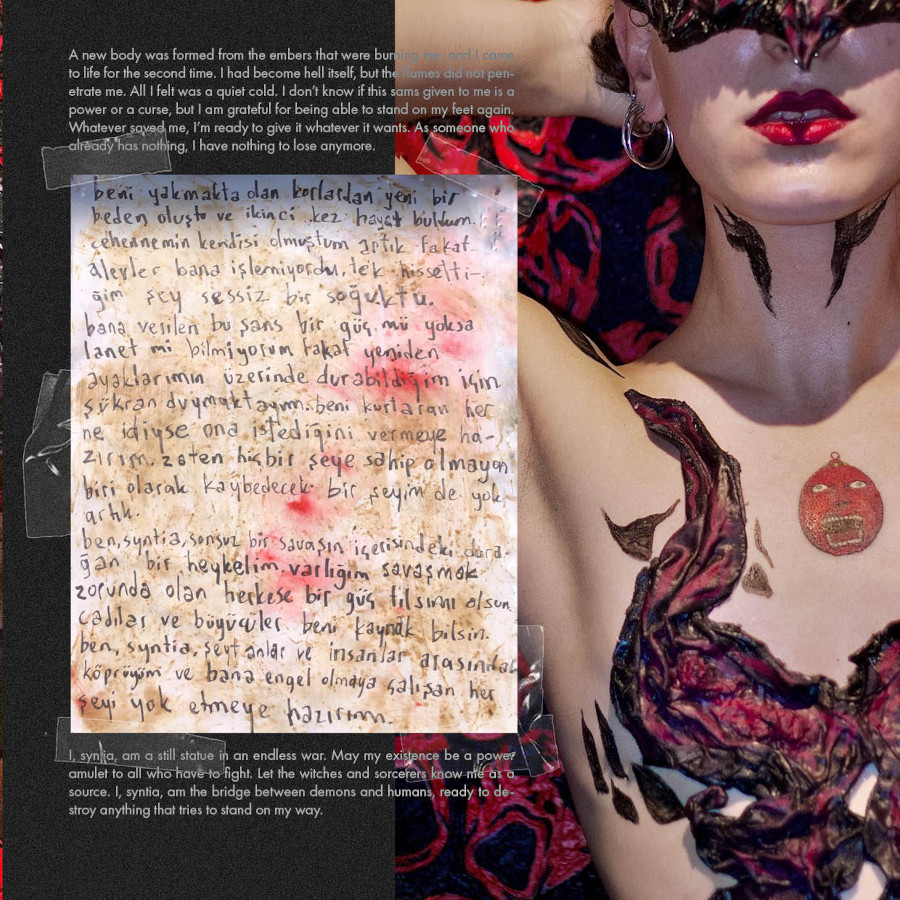 A new body was formed from the embers that were burning me, and I came
to life for the second time. I had become hell itself, but the flames did not pen-
etrate me. All I felt was a quiet cold. I don't know if this sams given to me is a
power or a curse, but I am grateful for being able to stand on my feet again.
Whatever saved me, I'm ready to give it whatever it wants. As someone who
already has nothing, I have nothing to lose anymore.
beni yakmakta olan korlardan yeni bir
beden oluştu ve ikinci kez hayat buldum.
cehennemin kendisi olmuştum artık fakat
alevler bana işlemiyordu, tek hissetti-
ğim şey sessiz bir soğuktu.
bana verilen bu şans bir güç mü yoksa
lanet mi bilmiyorum fakat yeniden
ayaklarımın üzerinde durabildiğim için
şükran duymaktayım. beni kurtaran her
ne idiyse ona istediğini vermeye ha-
zırım. zaten hiçbir şeye sahip olmayan
biri olarak kaybedecek bir şeyim de yok
artık.
ben, syntia, sonsuz bir savaşın içerisindeki dura-
ğan bir heykelim. varlığım savaşmak
zorunda olan herkese bir güç tılsımı olsun.
cadılar ve büyücüler beni kaynak bilsin.
ben, syntia, şeytanlar ve insanlar arasındaki
köprüyüm ve bana engel olmaya çalışan her
şeyi yok etmeye hazırım.
I, syntia, am a still statue in an endless war. May my existence be a power
amulet to all who have to fight. Let the witches and sorcerers know me as a
source. I, syntia, am the bridge between demons and humans, ready to de-
stroy anything that tries to stand on my way.